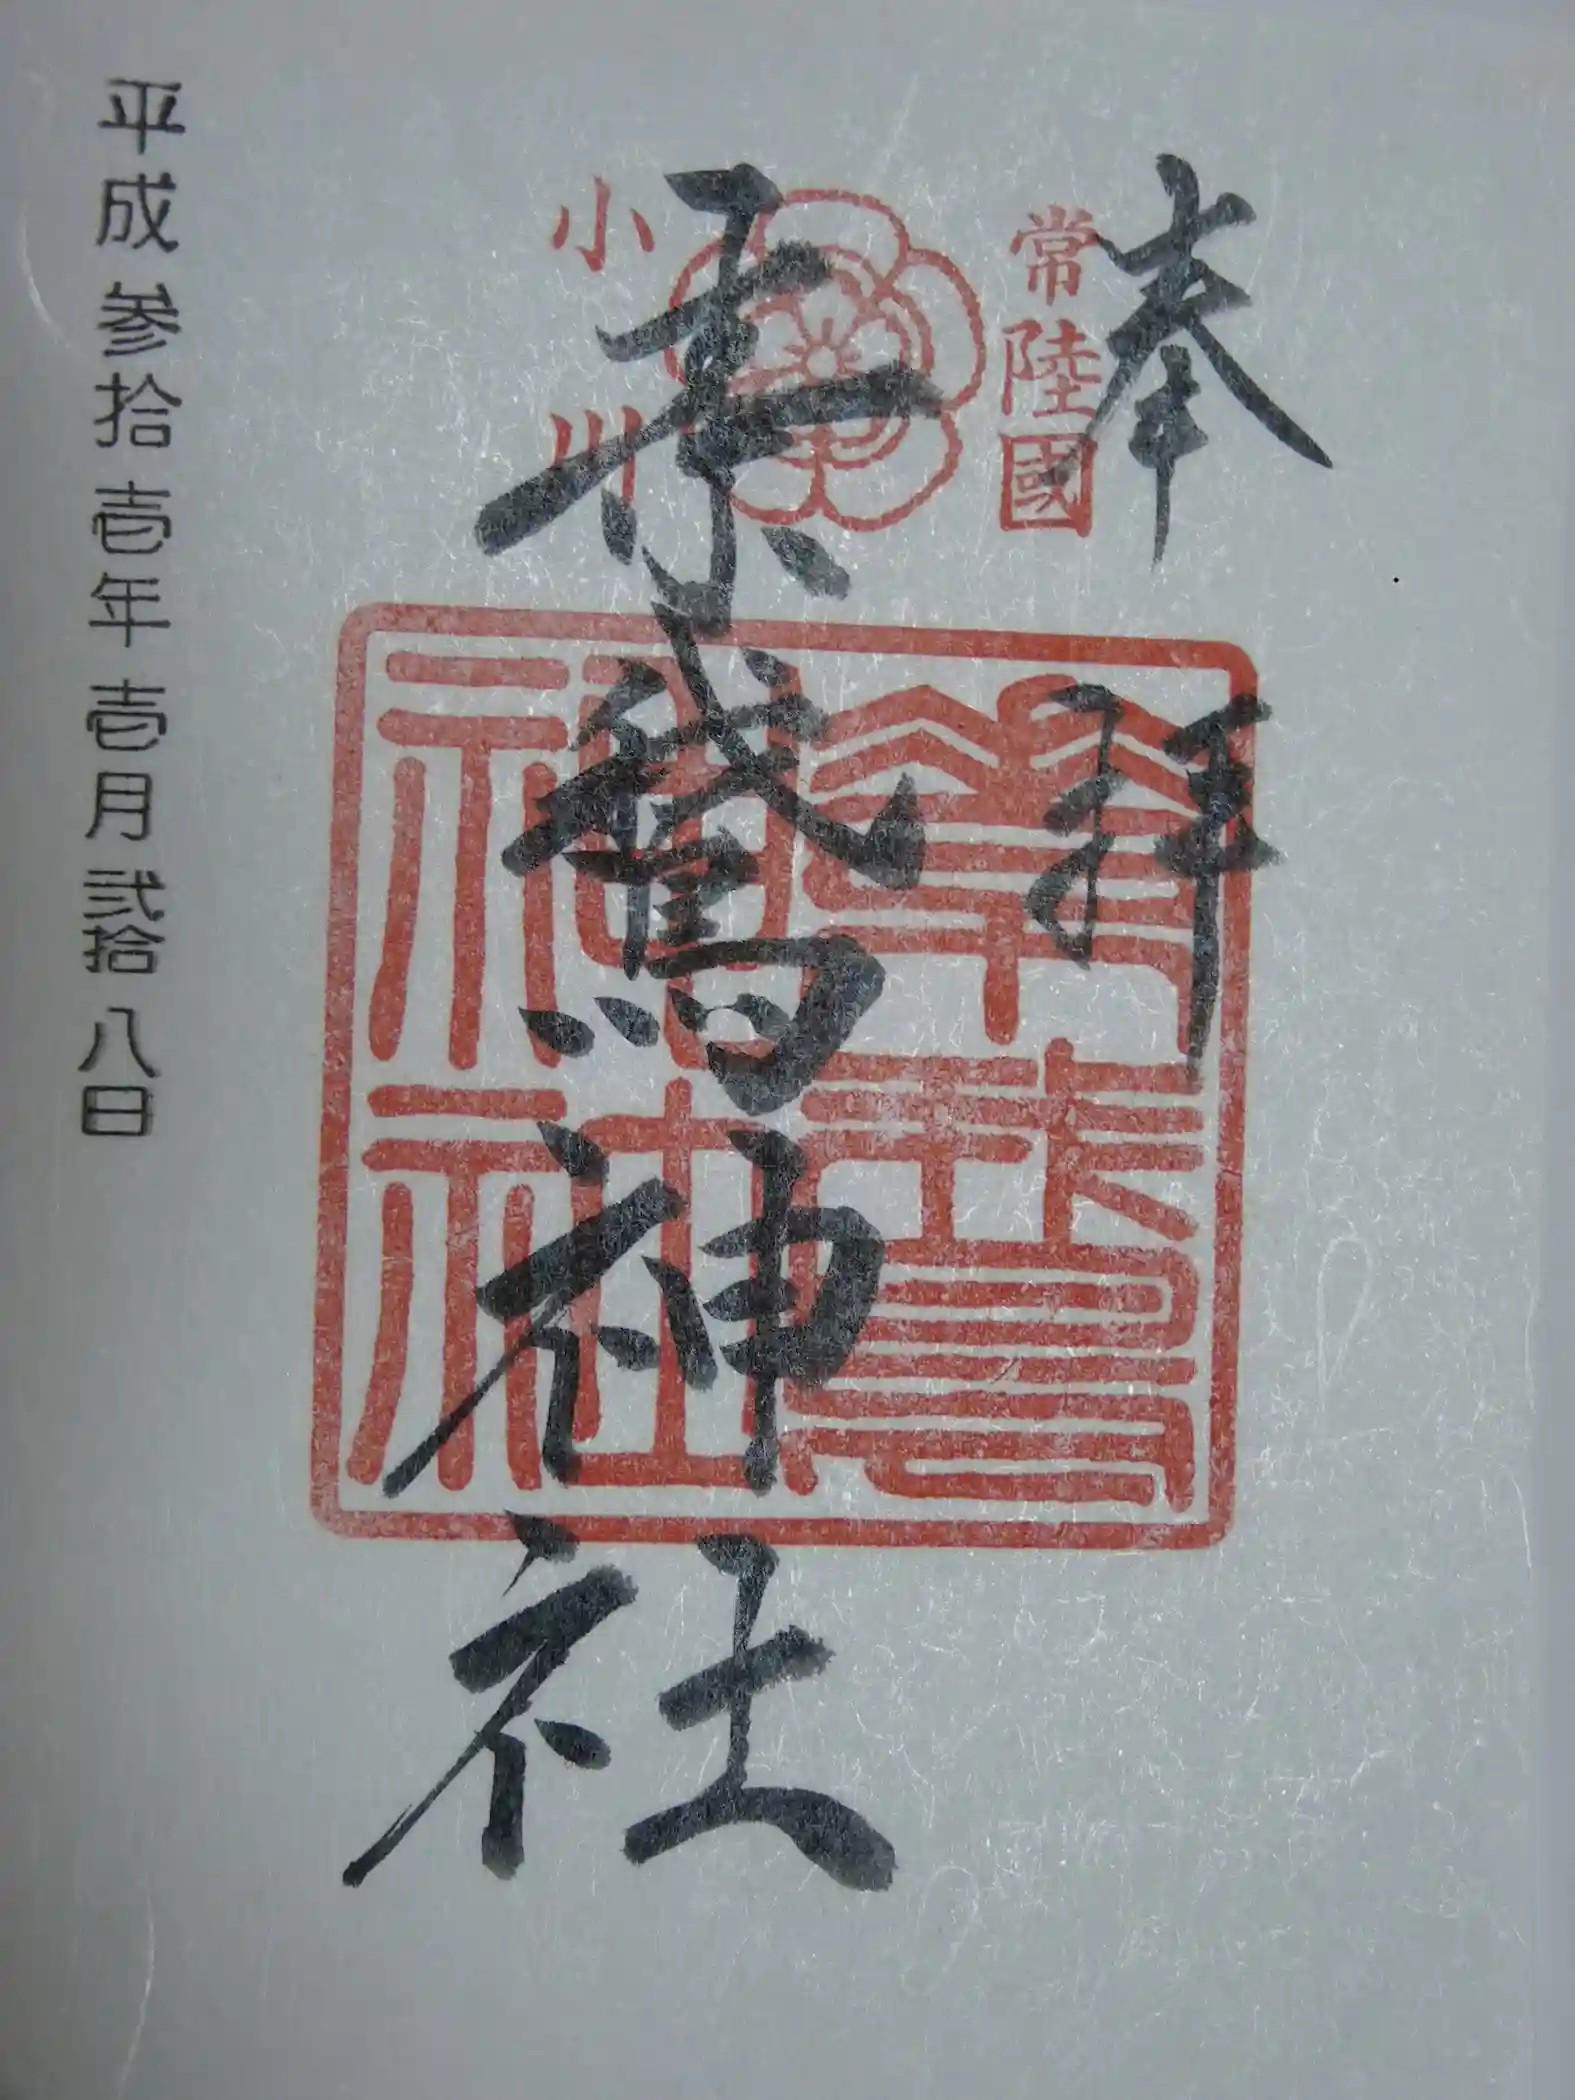 奉拝
常陸國
素鵞神社
小川
素鵞神社
平成参拾壱年壱月弐拾八日